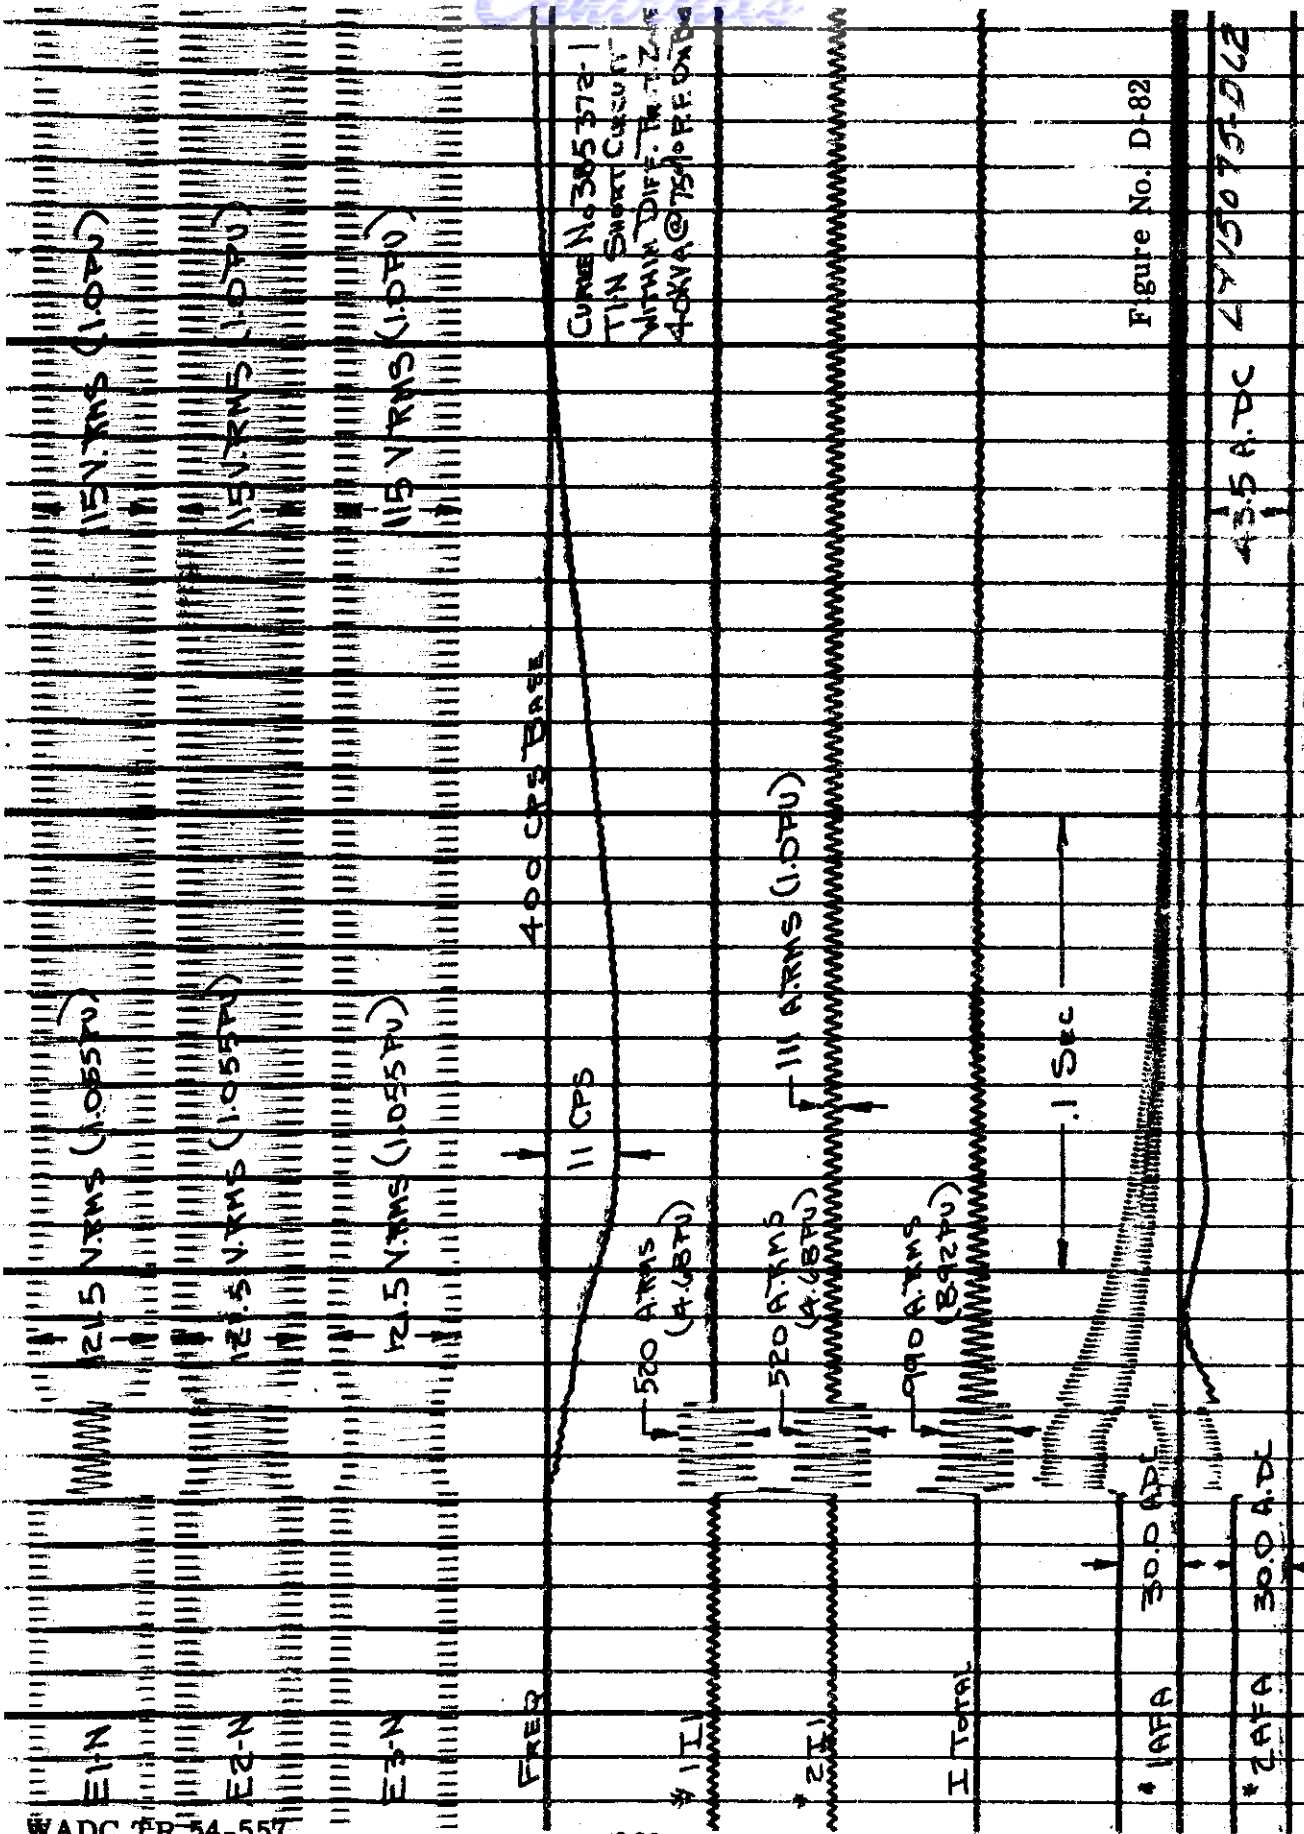 E1-N
121.5 V.RMS (1.055PU)
115 V.RMS (1.0PU)
E2-N
121.5 V.RMS (1.055PU)
115 V.RMS (1.0PU)
E3-N
121.5 V.RMS (1.055PU)
115 V RMS (1.0PU)
FREQ
11 CPS
400 CPS BASE
CURVE No 385372-1
T1-N SHORT CIRCUIT
WITHIN DIFF. PROT. ZONE
40KVA @ 75% P.F.
* 1 I1
520 A.RMS
(4.68PU)
* 2I1
520 A.RMS
(4.68PU)
111 A.RMS (1.0PU)
I TOTAL
990 A.RMS
(8.92PU)
.1 SEC
* 1AFA
30.0 ADC
Figure No. D-82
* 2AFA
30.0 A.DC
43.5 A.DC
WADC TR 54-557